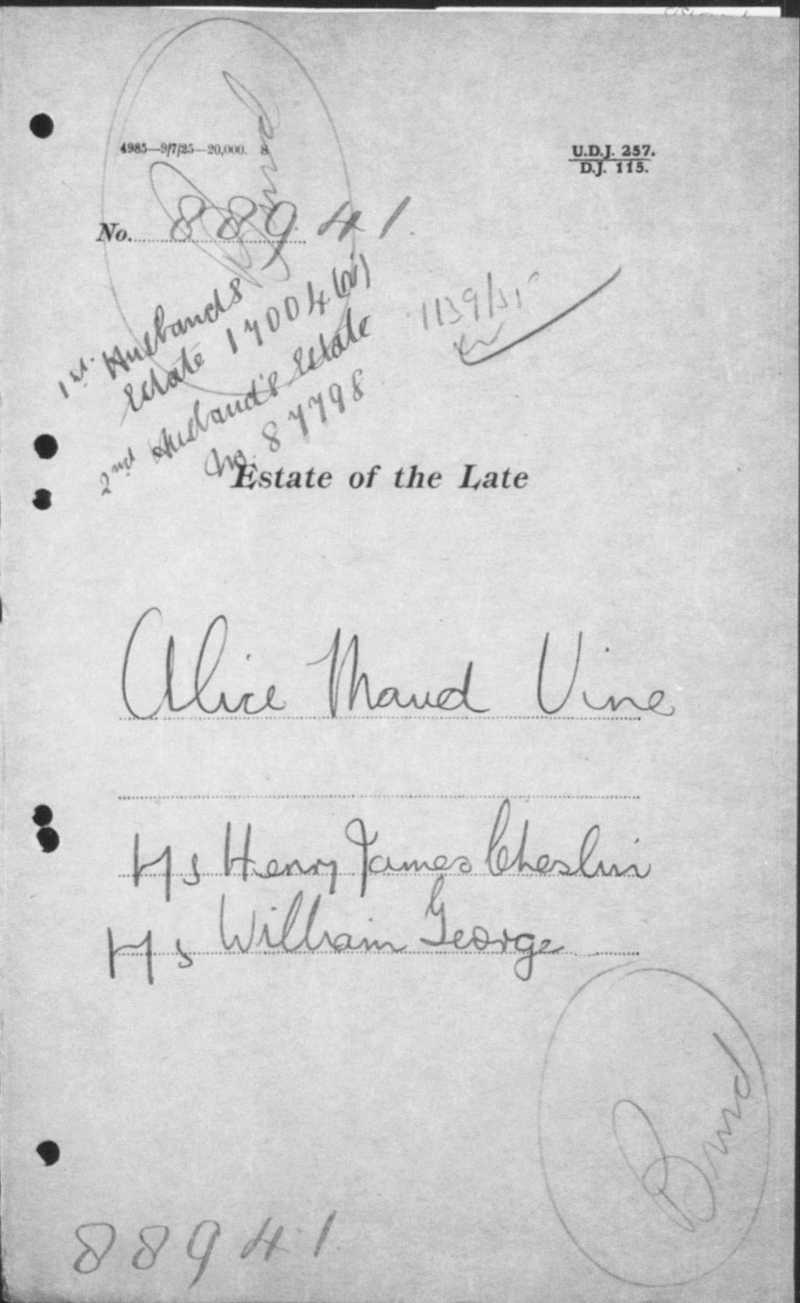 4985—9/7/25—20,000. S
U.D.J. 257.
D.J. 115.
Bind
No. 88941.
1st Husband's
Estate 17004
2nd Husband's Estate
No. 87798
1139/35
Estate of the Late
Alice Maud Vine
Hs Henry James Cheslin
Hs William George
Bind
88941.